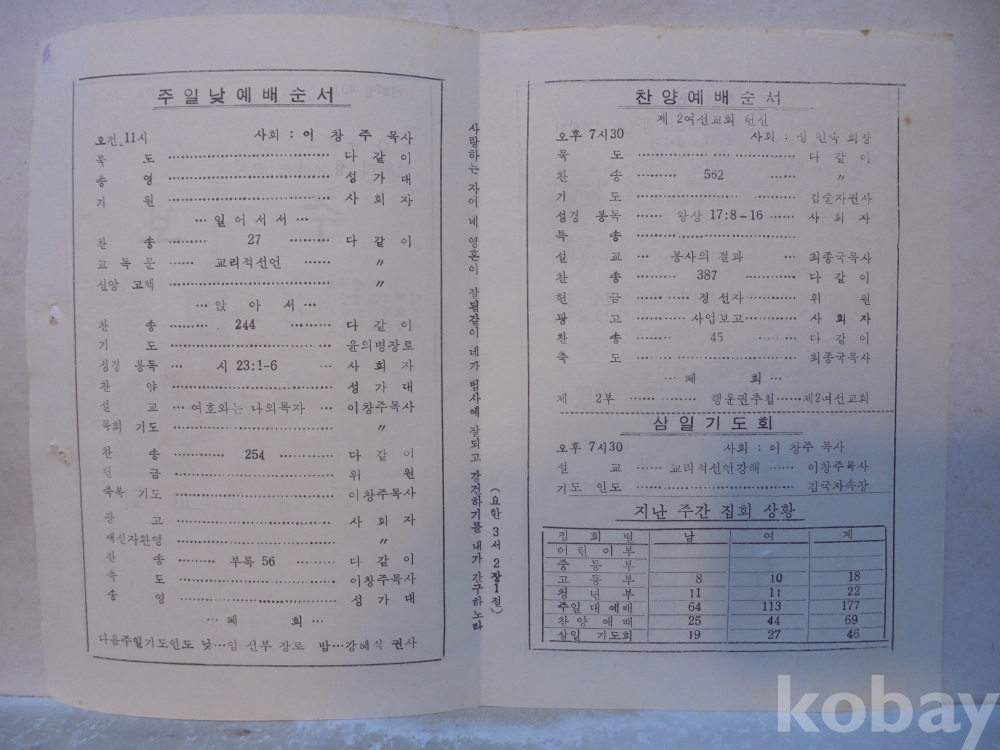 주일낮예배순서
오전 11시 사회 : 이 창주 목사
묵 도 ………… 다 같 이
송 영 ………… 성 가 대
기 원 ………… 사 회 자
… 일 어 서 서 …
찬 송 ……… 27 ……… 다 같 이
교 독 문 …… 교리적선언 …… 〃
신앙 고백 ………… 〃
… 앉 아 서 …
찬 송 ……… 244 ……… 다 같 이
기 도 ………… 윤의병장로
성경 봉독 … 시 23:1-6 … 사 회 자
찬 양 ………… 성 가 대
설 교 … 여호와는 나의목자 … 이창주목사
목회 기도 ………… 〃
찬 송 ……… 254 ……… 다 같 이
헌 금 ………… 위 원
축복 기도 ………… 이창주목사
광 고 ………… 사 회 자
새신자환영 ………… 〃
찬 송 ……… 부록 56 ……… 다 같 이
축 도 ………… 이창주목사
송 영 ………… 성 가 대
… 폐 회 …
다음주일기도인도 낮…임 선부 장로 밤…강혜식 권사
사랑하는 자여 네 영혼이 잘됨같이 네가 범사에 잘되고 강건하기를 내가 간구하노라
(요한 3서 2장1절)
찬양예배순서
제 2여선교회 헌신
오후 7시30 사회 : 성 인숙 회장
묵 도 ………… 다 같 이
찬 송 ……… 562 ……… 〃
기 도 ………… 김순자권사
성경 봉독 …… 왕상 17:8-16 …… 사 회 자
특 송 …………
설 교 … 봉사의 결과 … 최종국목사
찬 송 ……… 387 ……… 다 같 이
헌 금 ……… 정 선자 ……… 위 원
광 고 ……… 사업보고 ……… 사 회 자
찬 송 ……… 45 ……… 다 같 이
축 도 ………… 최종국목사
… 폐 회 …
제 2부 ……… 행운권추첨 ……제2여선교회
삼일기도회
오후 7시30 사회 : 이 창주 목사
설 교 …… 교리적선언강해 …… 이창주목사
기도 인도 ………… 김국자속장
지난 주간 집회 상황
집 회 별 남 여 계
어린이부
중 등 부
고 등 부 8 10 18
청 년 부 11 11 22
주일 대 예배 64 113 177
찬양 예배 25 44 69
삼일 기도회 19 27 46
kobay